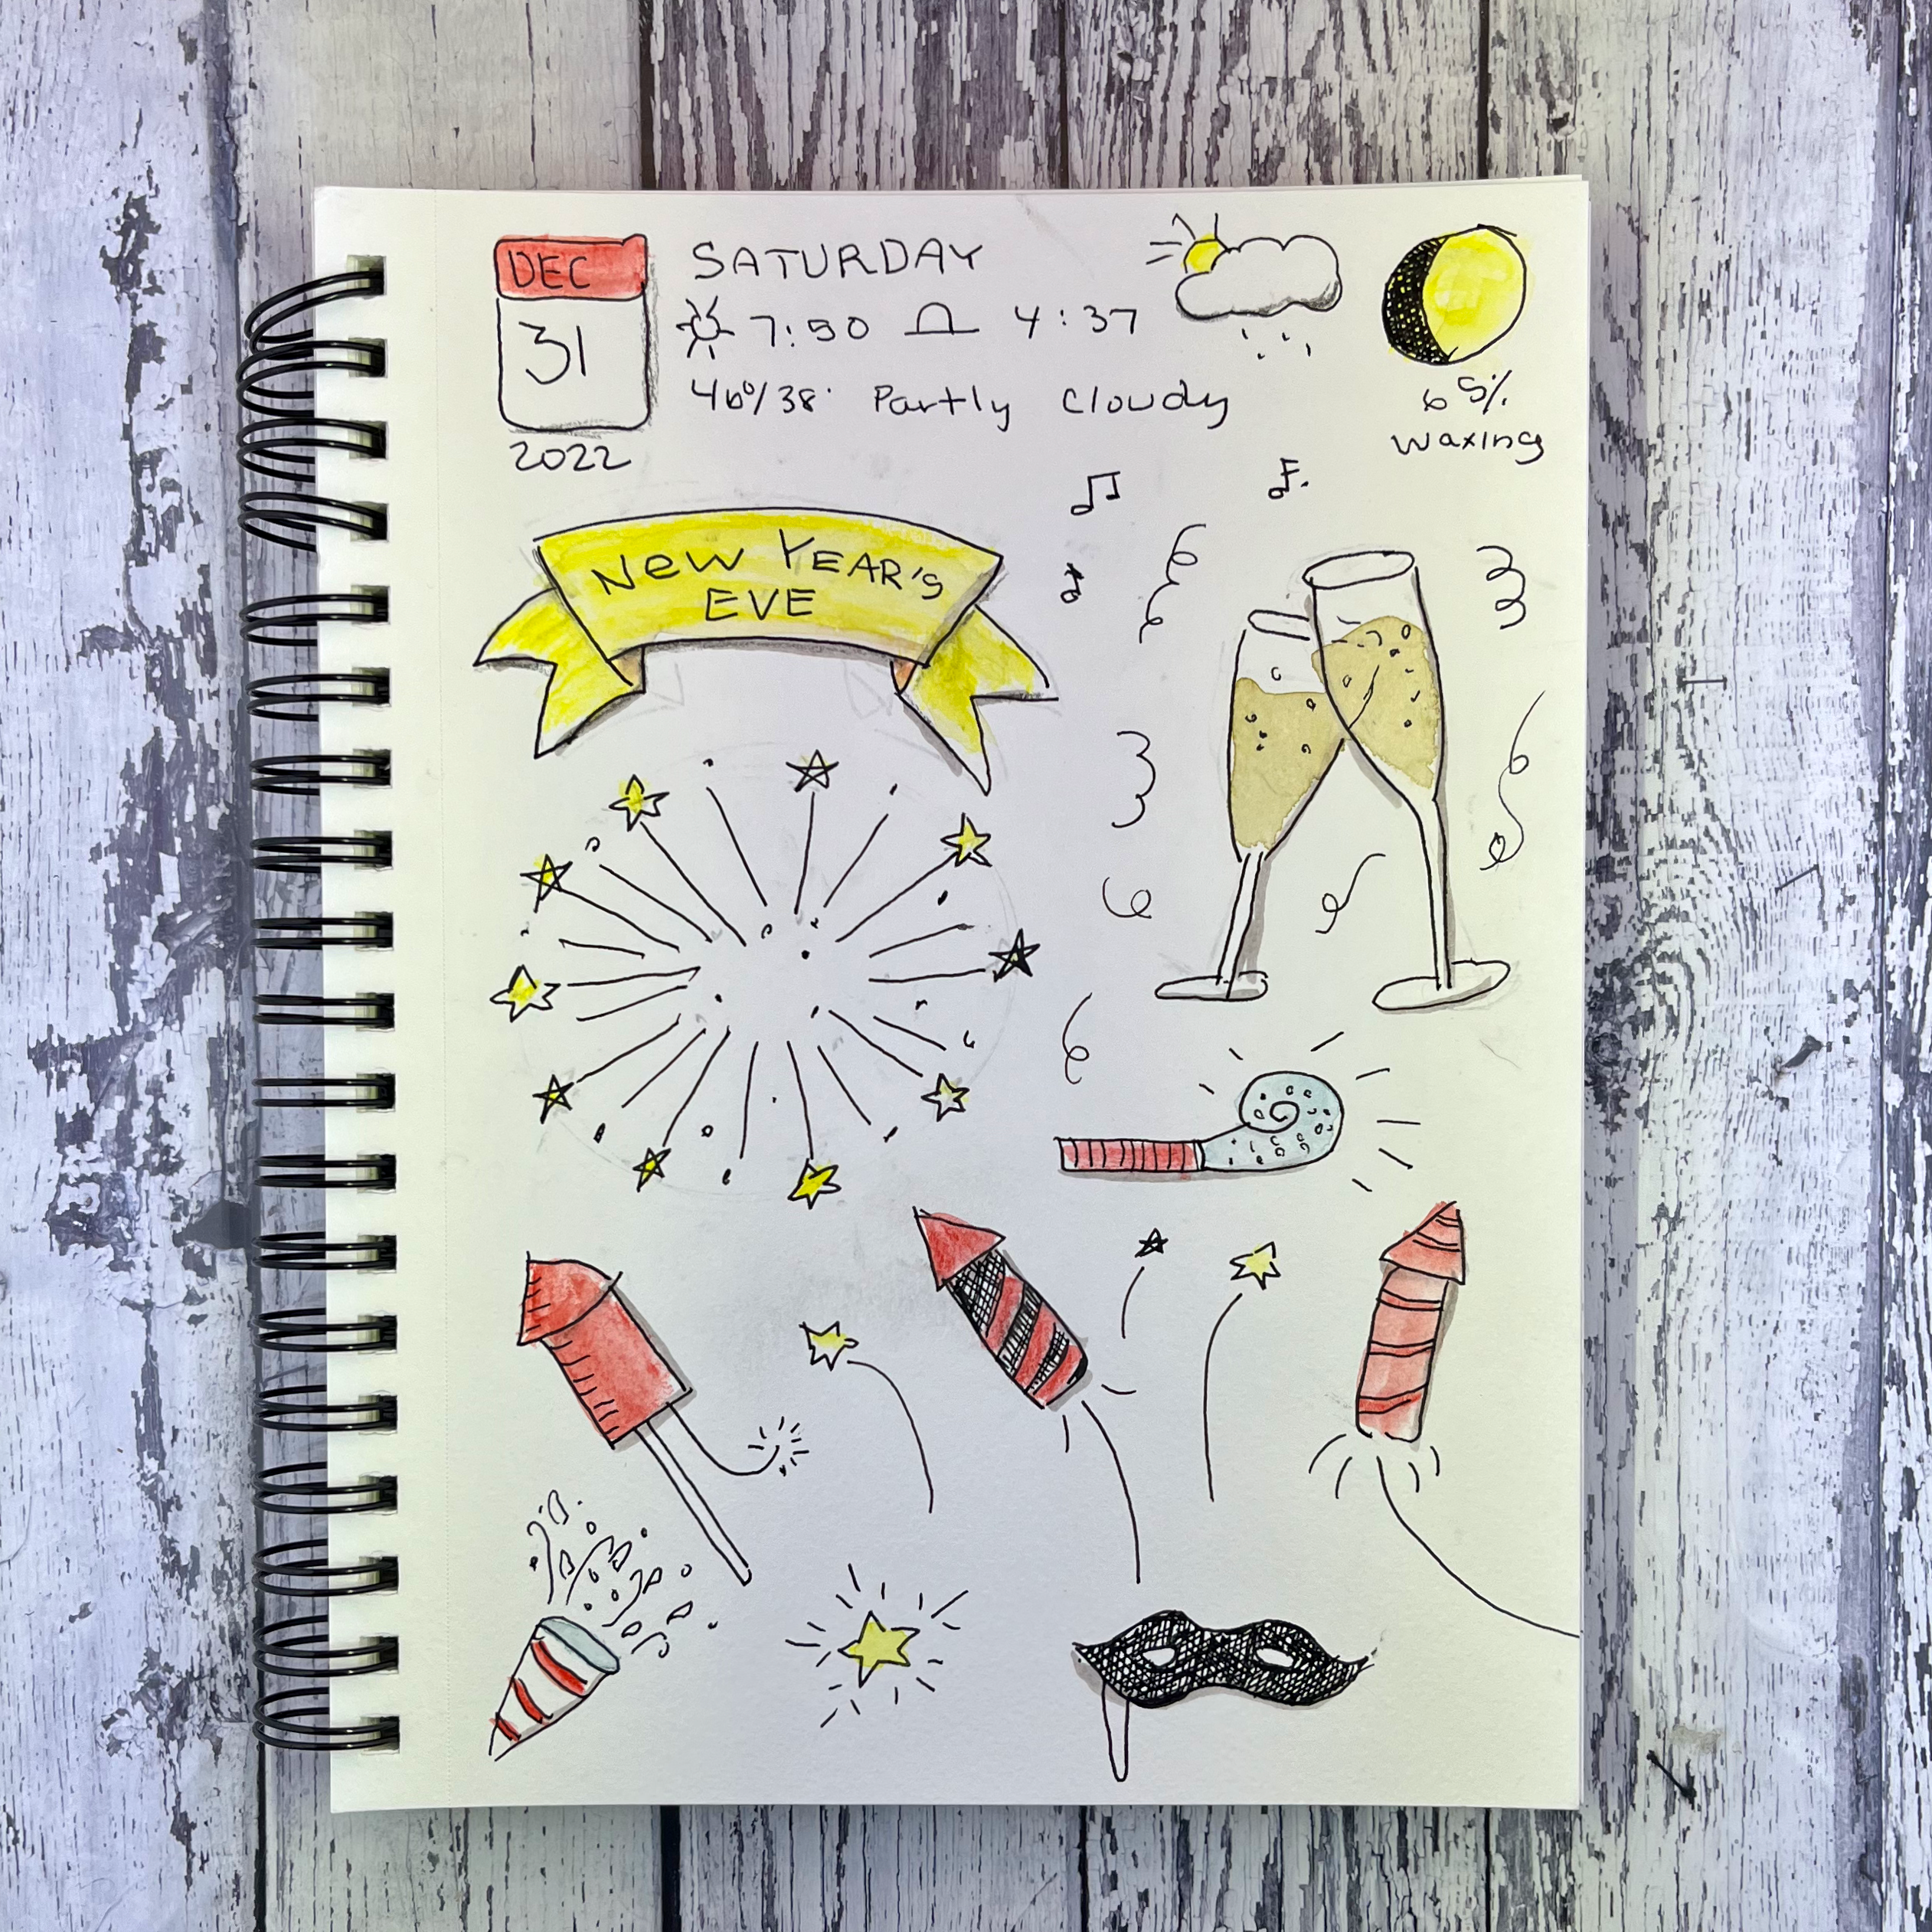 DEC
31
2022
SATURDAY
7:50 4:37
46°/38° Partly Cloudy
65%
waxing
New YEAR's
EVE